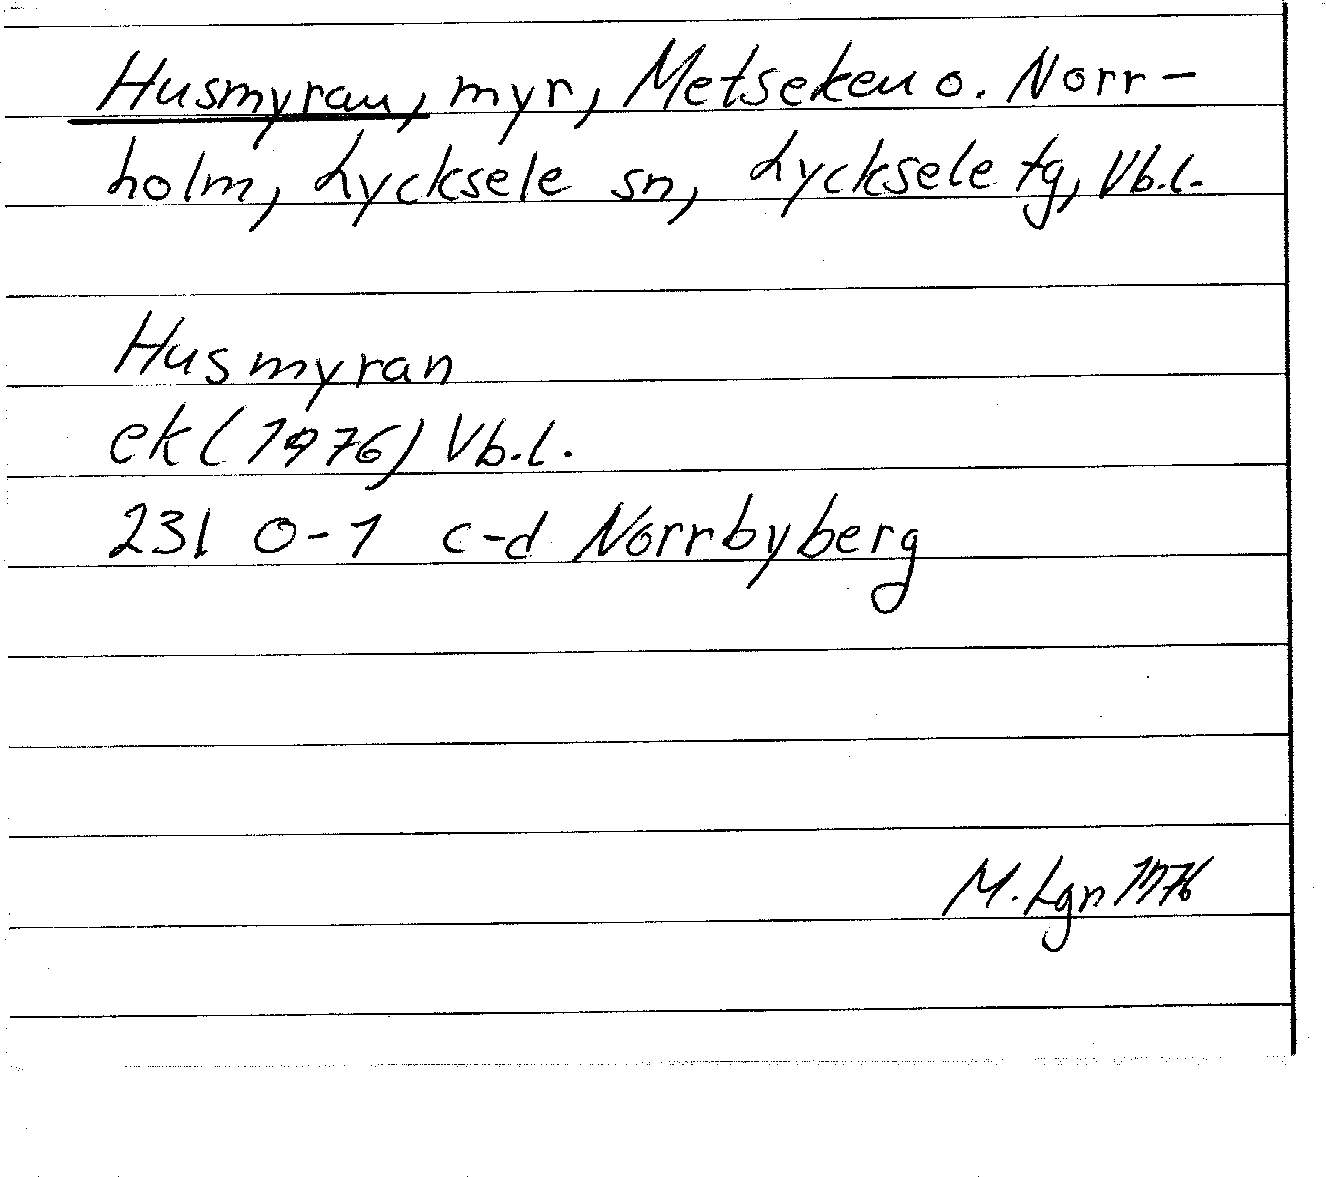 Husmyran, myr, Metseken o. Norr-
holm, Lycksele sn, Lycksele tg, Vb.l.
Husmyran
ek (1976) Vb.l.
23I 0-1 c-d Norrbyberg
M. Lgn 1976